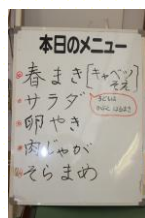 本日のメニュー
春まき[キャベツ
そえ]
サラダ
卵やき
肉じゃが
そらまめ